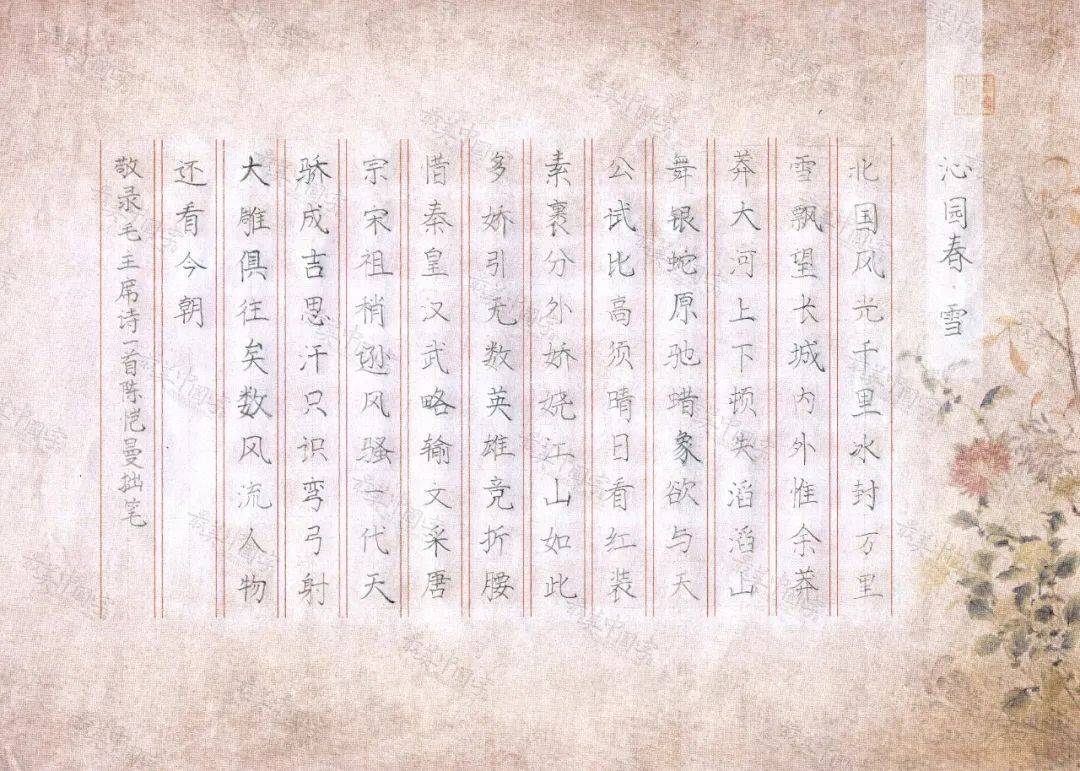 沁园春·雪
北国风光千里冰封万里
雪飘望长城内外惟余莽
莽大河上下顿失滔滔山
舞银蛇原驰蜡象欲与天
公试比高须晴日看红装
素裹分外娇娆江山如此
多娇引无数英雄竞折腰
惜秦皇汉武略输文采唐
宗宋祖稍逊风骚一代天
骄成吉思汗只识弯弓射
大雕俱往矣数风流人物
还看今朝
敬录毛主席诗一首陈恺曼拙笔